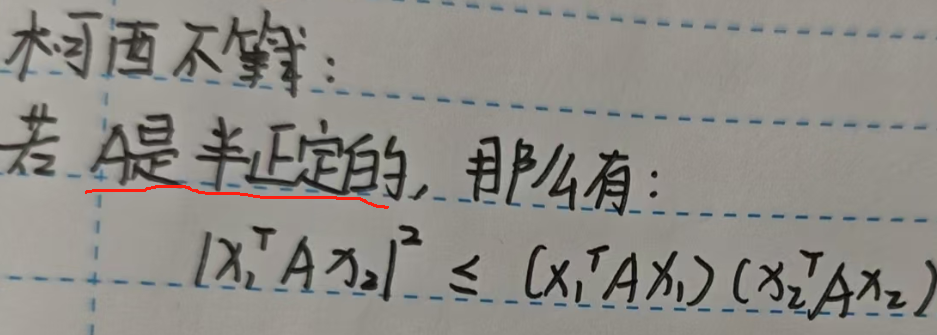 柯西不等式:
若 A是半正定的, 那么有:
|x₁ᵀ A x₂|² ≤ (x₁ᵀAx₁)(x₂ᵀAx₂)